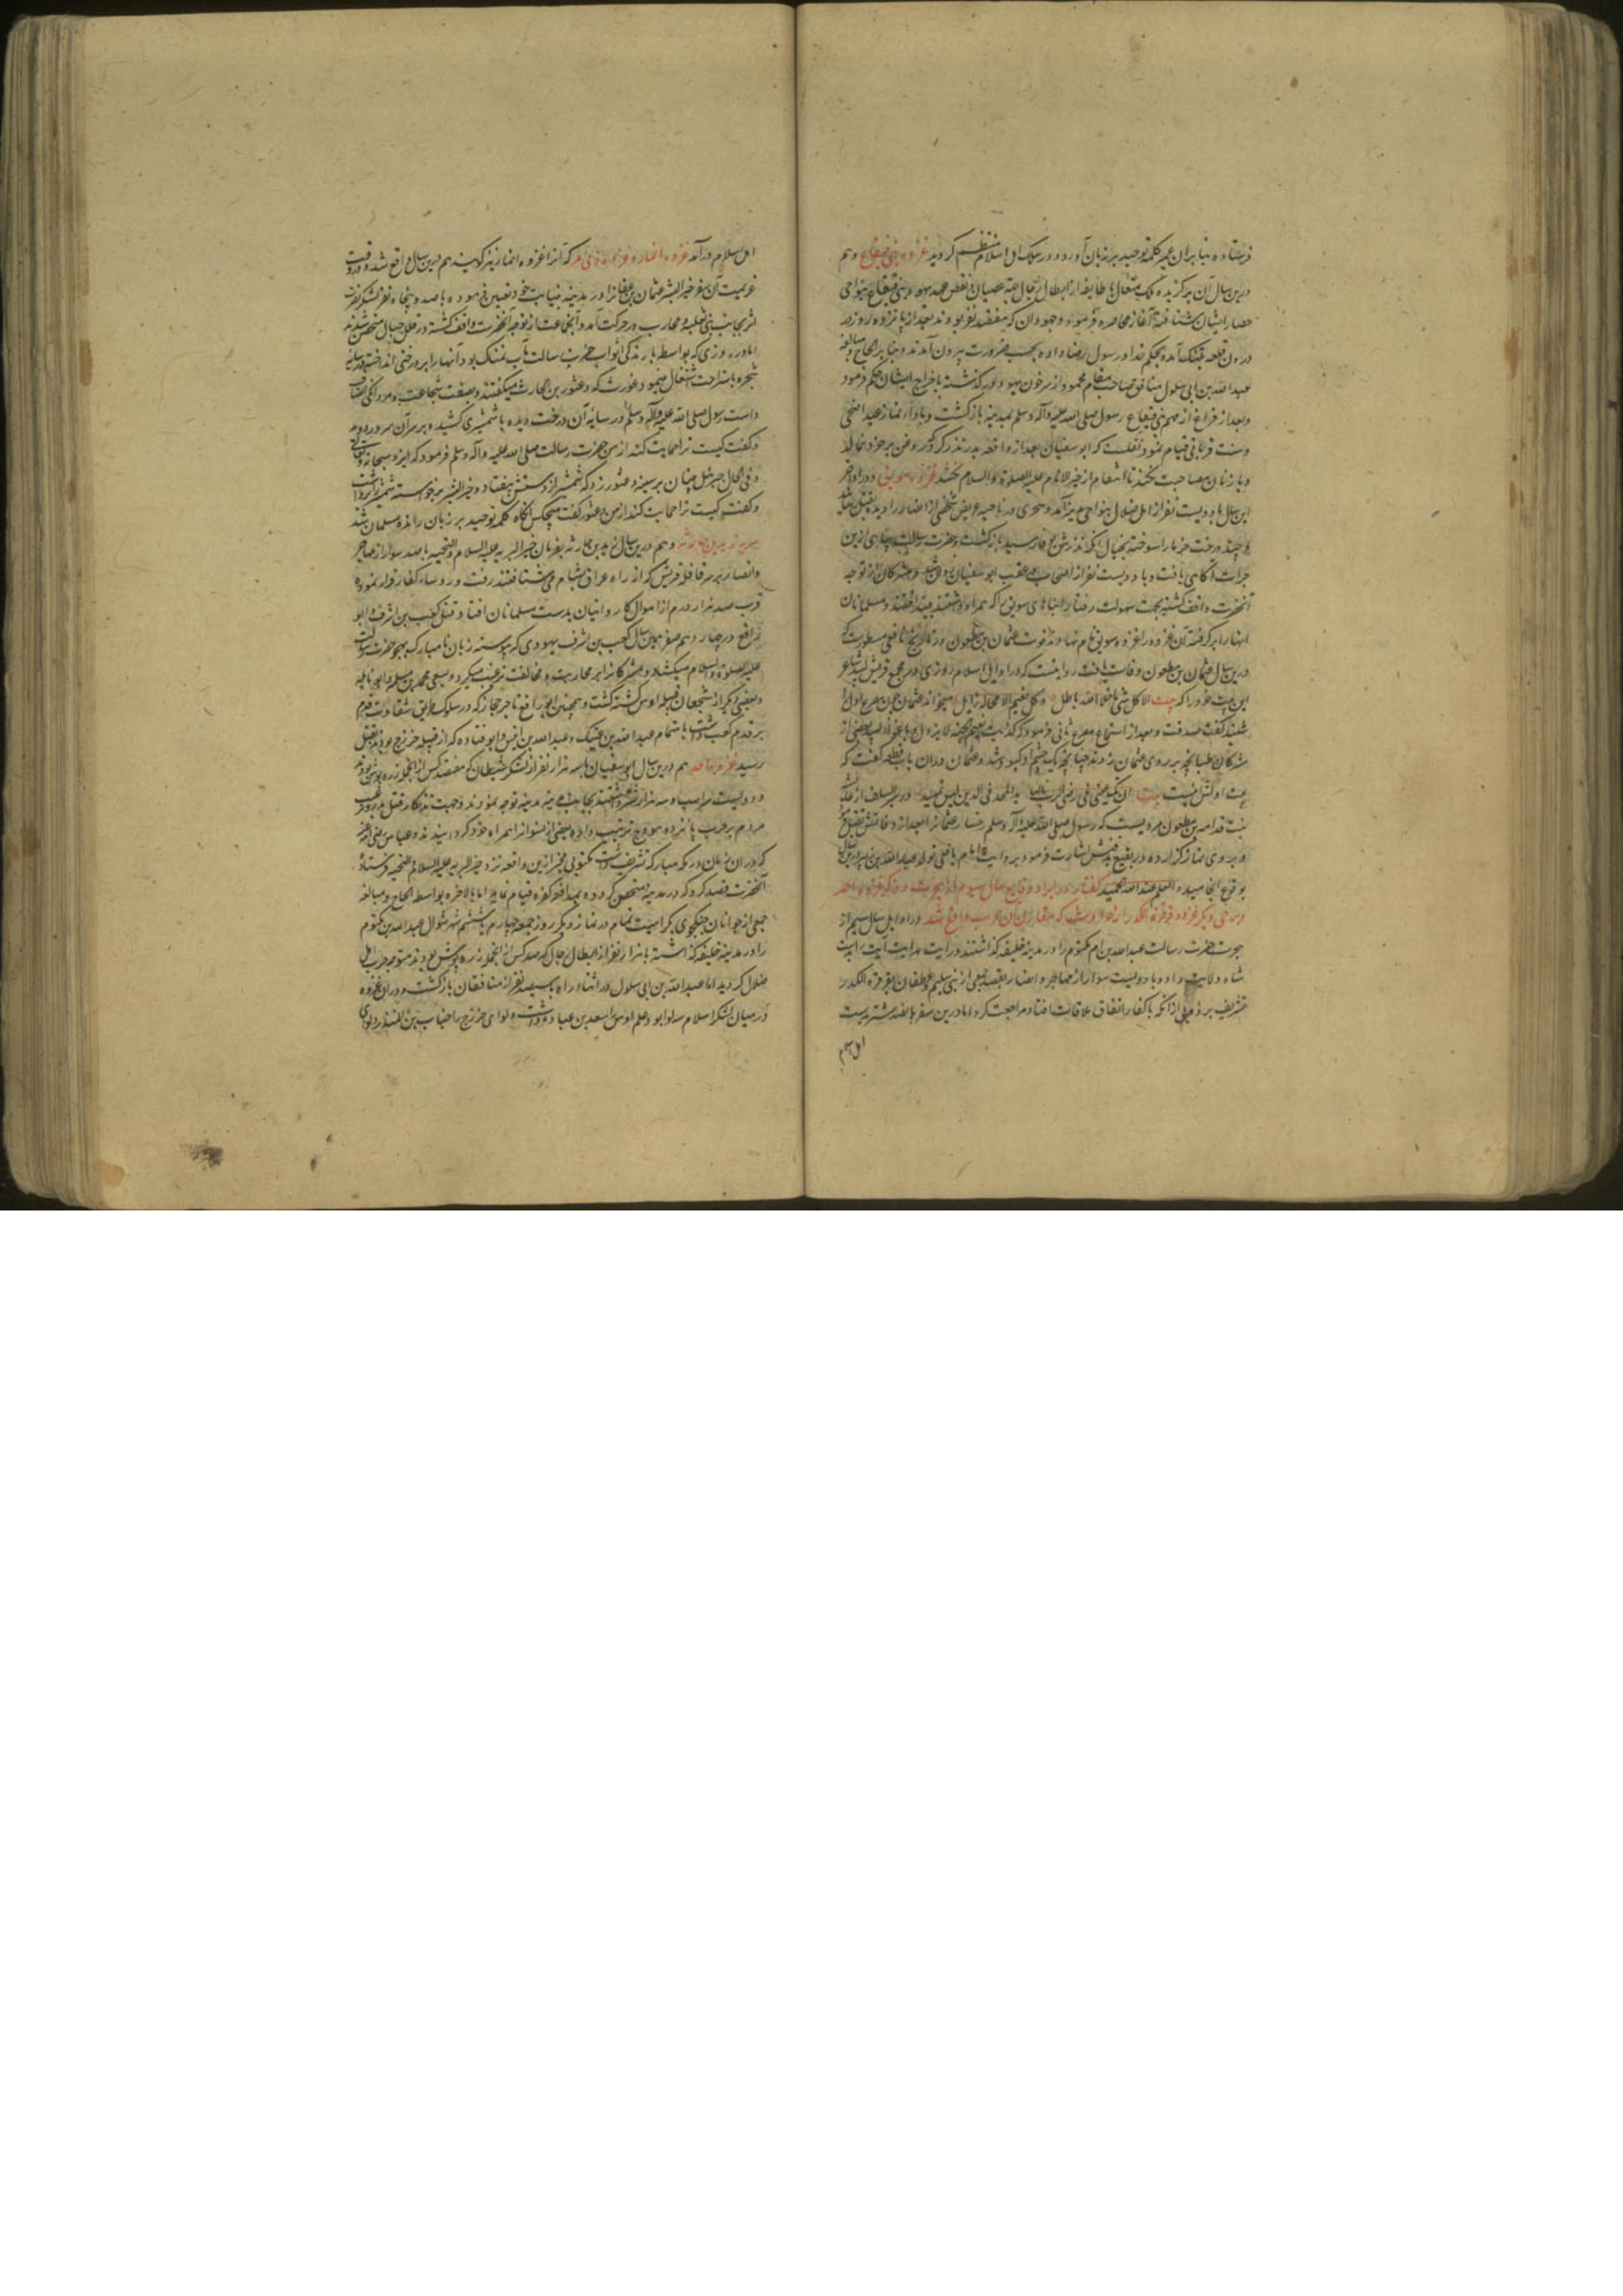 فرستاده بنابران عمیر کلمه توحید بر زبان آورد و در سلک اهل اسلام منتظم گردید غزوه بنی قینقاع و هم
درین سال آن برگزیده ملک متعال با طایفه از ابطال رجال بنقض عهد یهود بنی قینقاع بنواحی
حصار ایشان شتافته آغاز محاصره فرمود و جهودان که هفتصد نفر بودند بعد از پانزده روز در
درون قلعه بتنگ آمده بحکم خدا و رسول رضا داده بحسب ضرورت بیرون آمدند و بنابر الحاح و مبالغه
عبد الله بن ابی سلول منافق صاحب مقام محمود از سر خون یهود درگذشته باخراج ایشان حکم فرمود
و بعد از فراغ از مهم بنی قینقاع رسول صلی الله علیه و آله و سلم بمدینه بازگشت و باداء نماز عید اضحی
و سنت قربانی قیام نمود نقلست که ابو سفیان بعد از واقعه بدر نذر کرد که روغن بر خود نمالد
و با زنان مصاحبت نکند تا انتقام از خیر الانام علیه الصلوة و السلام نکشد غزوه سویق و در اواخر
این سال با دویست نفر از اهل ضلال بنواحی مدینه آمد و سحری در ناحیه عریض شخصی از انصار را دیده بقتل رسانید
و چند درخت خرما را سوخته بخیال آنکه نذرش بوفا رسید بازگشت و حضرت رسالت پناهی ازین
جرات آگاهی یافت و با دویست نفر از اصحاب از عقب ابو سفیان روان شد و مشرکان از توجه
آنحضرت واقف گشته بجهت سهولت رفتار انبانهای سویق را که همراه داشتند بینداختند و مسلمانان
آنها را برگرفته آن غزوه را غزوه سویق نام نهادند فوت عثمان بن مظعون در تاریخ یافعی مسطورست که
درین سال عثمان بن مظعون وفات یافت روایتست که در اوایل اسلام روزی در مجمع قریش لبید شاعر
این بیت خود را که بیت الا کل شی ما خلا الله باطل و کل نعیم لا محاله زایل میخواند عثمان چون مصرع اول
شنید گفت صدقت و بعد از استماع مصرع ثانی فرمود که کذبت نعیم الجنه لا یزول
مشرکان طپانچه بر روی عثمان زدند چنانچه یک چشم او کبود شد و عثمان دران باب قطعه گفت که
بیت اولش اینست بیت
بنت قدامه بن مظعون مرویست که رسول صلی الله علیه و آله و سلم رخسار عثمان را بعد از وفاتش تقبیل
و بر وی نماز گزارده در بقیع بدفنش اشارت فرمود و بروایت امام یافعی تولد عبد الله بن زبیر درین سال
بوقوع انجامید و العلم عند الله الحمید گفتار در ایراد وقایع سال سیوم از هجرت و ذکر غزوه احد
و برخی دیگر غزوه قرقرة الکدر از حوادث که مقارن آن حرب واقع شد در اوایل سال سیم از
هجرت حضرت رسالت عبد الله بن ام مکتوم را در مدینه خلیفه گذاشتند و رایت هدایت آیت
شاه ولایت داد و با دویست سوار از مهاجر و انصار بقصد جمعی از بنی سلیم و غطفان بقرقرة الکدر
تشریف برد و بی از آنکه با کفار اتفاق ملاقات افتاد مراجعت کرد اما درین سفر پانصد شتر بدست
اهل اسلام
اهل اسلام درآمد غزوه انمار و غزوه ذی امر که آنرا غزوه انمار نیز گویند هم درین سال واقع شد و در وقت
عزیمت آن سفر خیر البشر عثمان بن عفان را در مدینه بنیابت خود تعیین فرموده با چهارصد و پنجاه نفر
بجانب بنی ثعلبه و محارب در حرکت آمد و آن جماعت از توجه آنحضرت واقف گشته در قلل جبال متحصن شدند
اما در روزی که بواسطه بارندگی اثواب حضرت رسالت مآب نمناک بود و آنها را بر درختی انداخته در سایه
شجره باستراحت اشتغال مینمود غورث که دعثور بن الحارث میگفتند و بصفت شجاعت و مردانگی اتصاف
داشت رسول صلی الله علیه و آله و سلم در سایه آن درخت دیده با شمشیری کشیده بر سر آن سرور دوید
و گفت کیست ترا حمایت کند از من حضرت رسالت صلی الله علیه و آله و سلم فرمود که ایزد سبحانه و تعالی
و فی الحال جبرئیل چنان بر سینه دعثور زد که شمشیر از دستش بیفتاد و خیر البشر برخواسته شمشیر را برداشت
و گفت کیست ترا حمایت کند از من دعثور گفت هیچکس آنگاه کلمه توحید بر زبان رانده مسلمان شد
سریه زید بن حارثه و هم درین سال زید بن حارثه بفرمان خیر البریه علیه السلام و التحیه با صد سوار از مهاجر
و انصار بر سر قافله قریش که از راه عراق بشام می شتافتند رفت و روساء کفار فرار نموده
قرب صد هزار درم از اموال کاروانیان بدست مسلمانان افتاد قتل کعب بن اشرف و ابو
رافع در چهاردهم صفر همین سال کعب بن اشرف یهودی که پیوسته زبان نامبارک بهجو حضرت رسالت
علیه الصلوة و السلام میگشاد و مشرکانرا بر محاربت و مخالفت ترغیب میکرد و بسعی محمد بن مسلمه و ابو نائله
و بعضی دیگر از شجعان قبیله اوس کشته گشت و همچنین ابو رافع تاجر حجاز که در سلوک طریق شقاوت قدم
بر قدم کعب داشت باهتمام عبد الله بن عتیک و عبد الله بن انیس و ابو قتاده که از قبیله خزرج بودند بقتل
رسید غزوه احد هم درین سال ابو سفیان با سه هزار نفر از لشکر شیطان که هفتصد کس از آنجمله زره پوش بودند
و دویست سر اسب و سه هزار شتر داشتند بجانب مدینه توجه نمودند و جهت تذکار قتل بدر و ترغیب
مردم بر حرب پانزده هودج ترتیب داده بعضی از نسوانرا همراه خود گردانیدند و عباس رضی الله عنه
که دران زمان در مکه مبارکه تشریف داشت مکتوبی مخبر ازین واقعه نزد خیر البریه علیه السلام و التحیه فرستاد
آنحضرت قصد کرد که در مدینه متحصن گردد و بمدافعه کفره قیام نماید اما بالاخره بواسطه الحاح و مبالغه
جمعی از جوانان جنگجوی بکراهیت تمام در نماز دیگر روز جمعه چهارم یا ششم شهر شوال عبد الله بن مکتوم
را در مدینه خلیفه گذاشته با هزار نفر از ابطال رجال که صد کس از آنجمله زره پوش بودند متوجه حرب اهل
ضلال گردید اما عبد الله بن ابی سلول در اثناء راه با سیصد نفر از منافقان بازگشت و دران غزوه
در میان لشکر اسلام سه لوا بود علم اوس را سعد بن عباده داشت و لوای خزرج را خباب بن المنذر و لوای